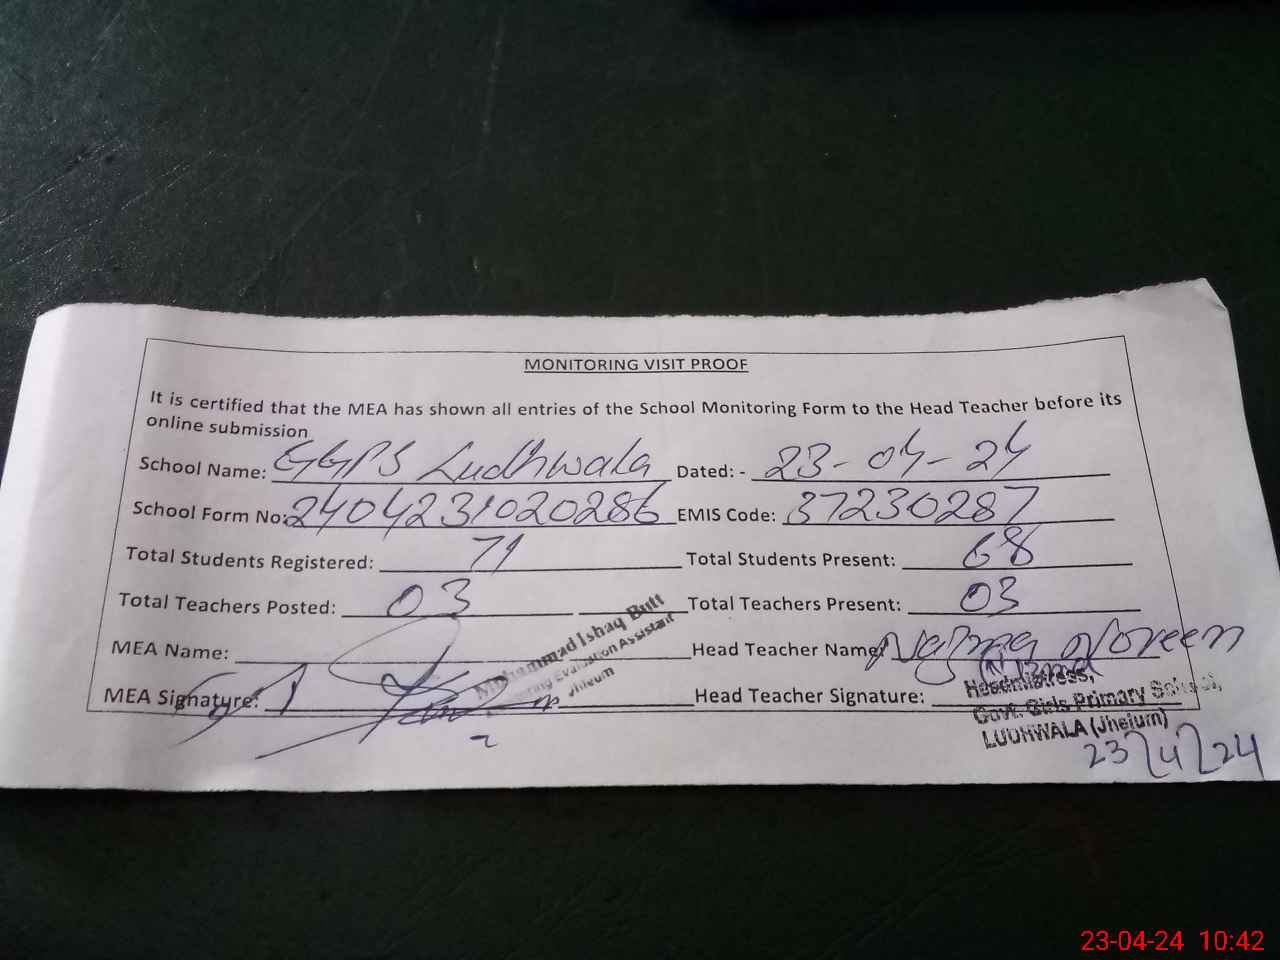 MONITORING VISIT PROOF
It is certified that the MEA has shown all entries of the School Monitoring Form to the Head Teacher before its
online submission
School Name: GGPS Ludhwala Dated: - 23-04-24
School Form No: 2404231020286 EMIS Code: 37230287
Total Students Registered: 71 Total Students Present: 68
Total Teachers Posted: 03 Total Teachers Present: 03
MEA Name: Head Teacher Name: Najma Noreen
MEA Signature: Head Teacher Signature:
Mohammad Ishaq Butt
Evaluation Assistant
Jhleum
Headmistress,
Govt. Girls Primary School,
LUDHWALA (Jhelum)
23/4/24
23-04-24 10:42